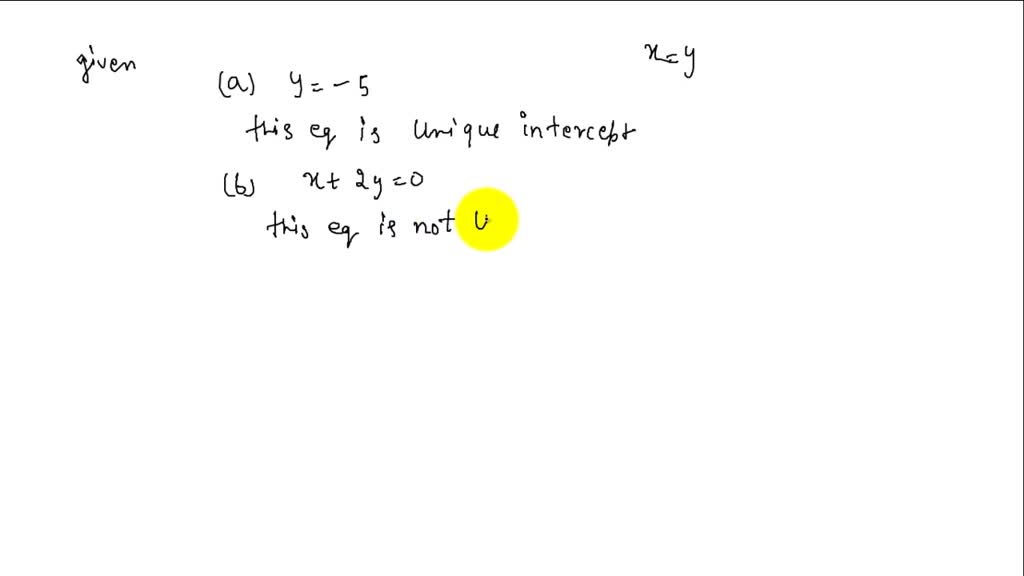 given
x=y
(a) y=-5
this eq is Unique intercept
(b) x+2y=0
this eq is not U